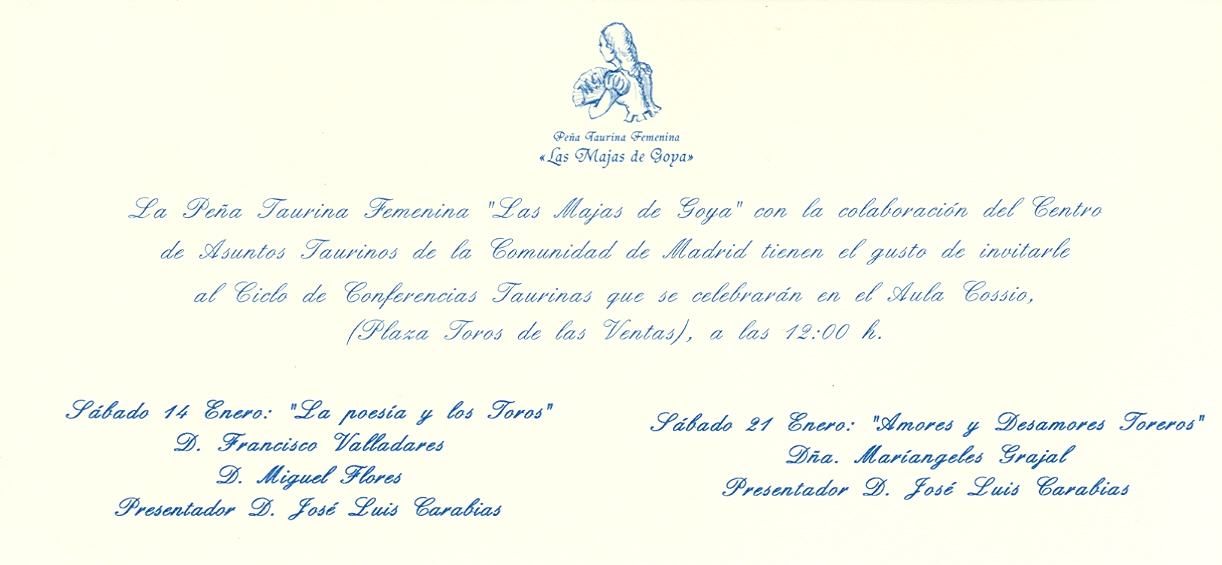 MG
Peña Taurina Femenina
«Las Majas de Goya»
La Peña Taurina Femenina "Las Majas de Goya" con la colaboración del Centro
de Asuntos Taurinos de la Comunidad de Madrid tienen el gusto de invitarle
al Ciclo de Conferencias Taurinas que se celebrarán en el Aula Cossio,
(Plaza Toros de las Ventas), a las 12:00 h.
Sábado 14 Enero: "La poesía y los Toros"
D. Francisco Valladares
D. Miguel Flores
Presentador D. José Luis Carabias
Sábado 21 Enero: "Amores y Desamores Toreros"
Dña. Maríangeles Grajal
Presentador D. José Luis Carabias